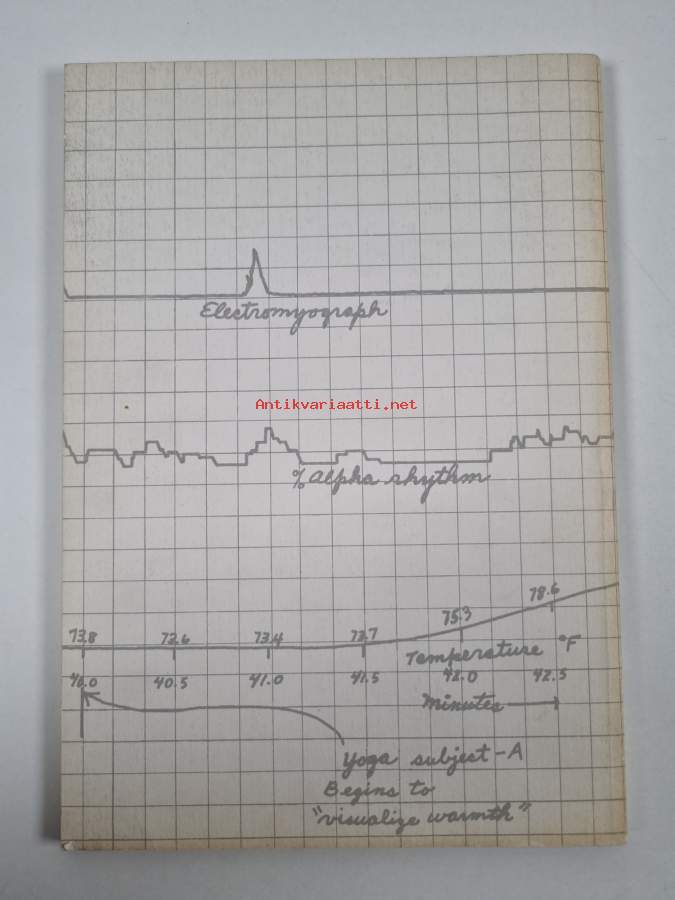 Electromyograph
Antikvariaatti.net
% Alpha rhythm
73.8 72.6 73.4 73.7 75.3 78.6
Temperature °F
40.0 40.5 41.0 41.5 42.0 42.5
Minutes
Yoga subject-A
Begins to
"visualize warmth"